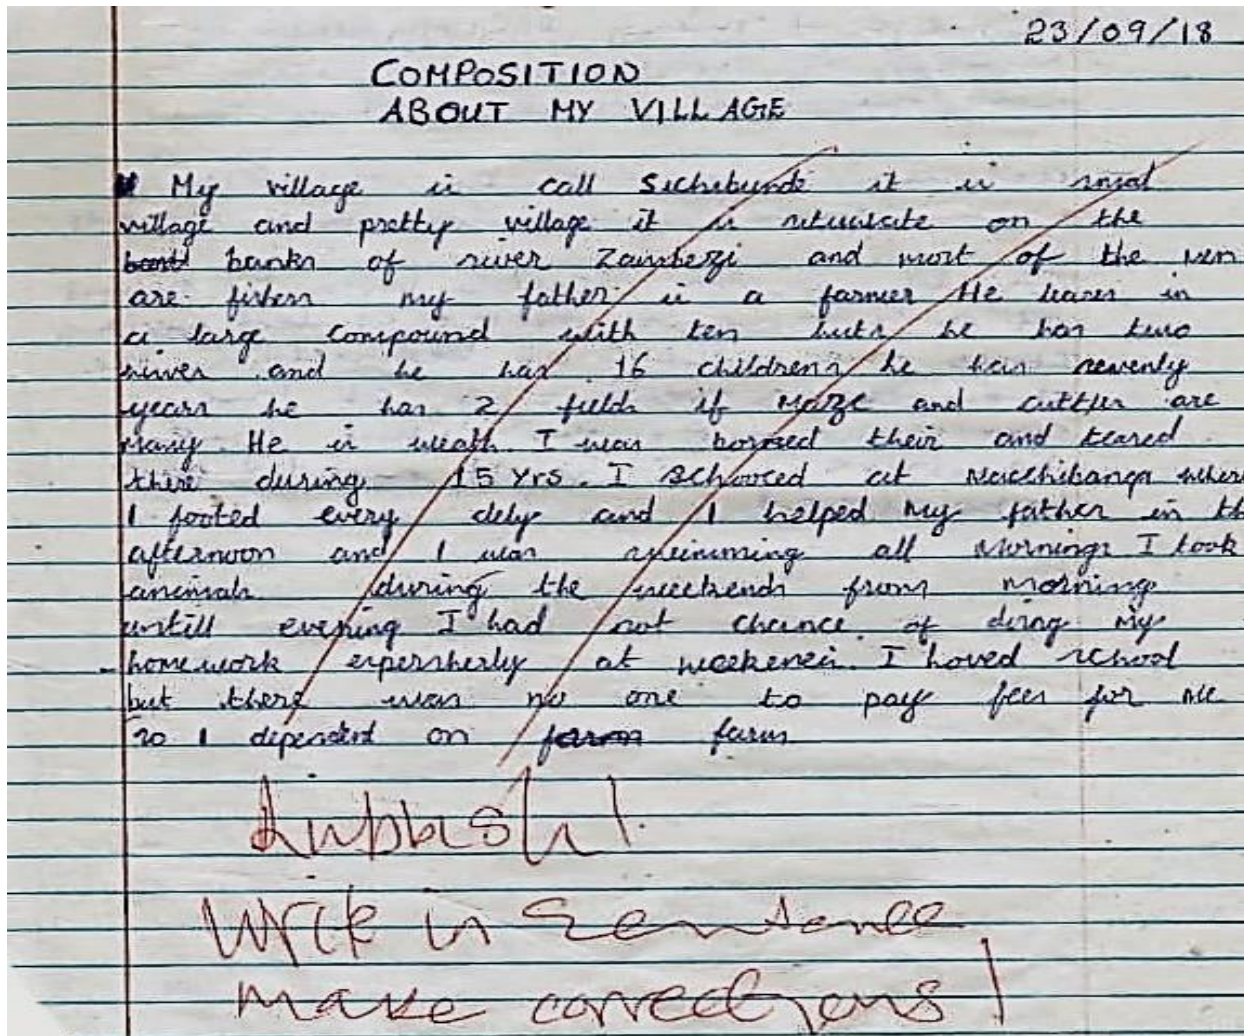 23/09/18
COMPOSITION
ABOUT MY VILLAGE
My village is call Sichibunde it is smal
village and pretty village it is situusate on the
banks of river Zambezi and most of the men
are fishers my father is a farmer He leaves in
a large compound with ten huts he has two
and he has 16 childrens he has seventy
years he has 2 fields if maze and cuttes are
many He is weath. I was borned their and teared
there during 15 yrs. I Schooled at where
I footed every day and I helped my father in the
afternoon and I was swimming all mornings I took
animals during the weekends from morning
untill evening I had not chance of doing my
homework at I loved school
but there was no one to pay fees for me
so I dipendent on farm
Rubbish!
Write in Sentence
make corrections!